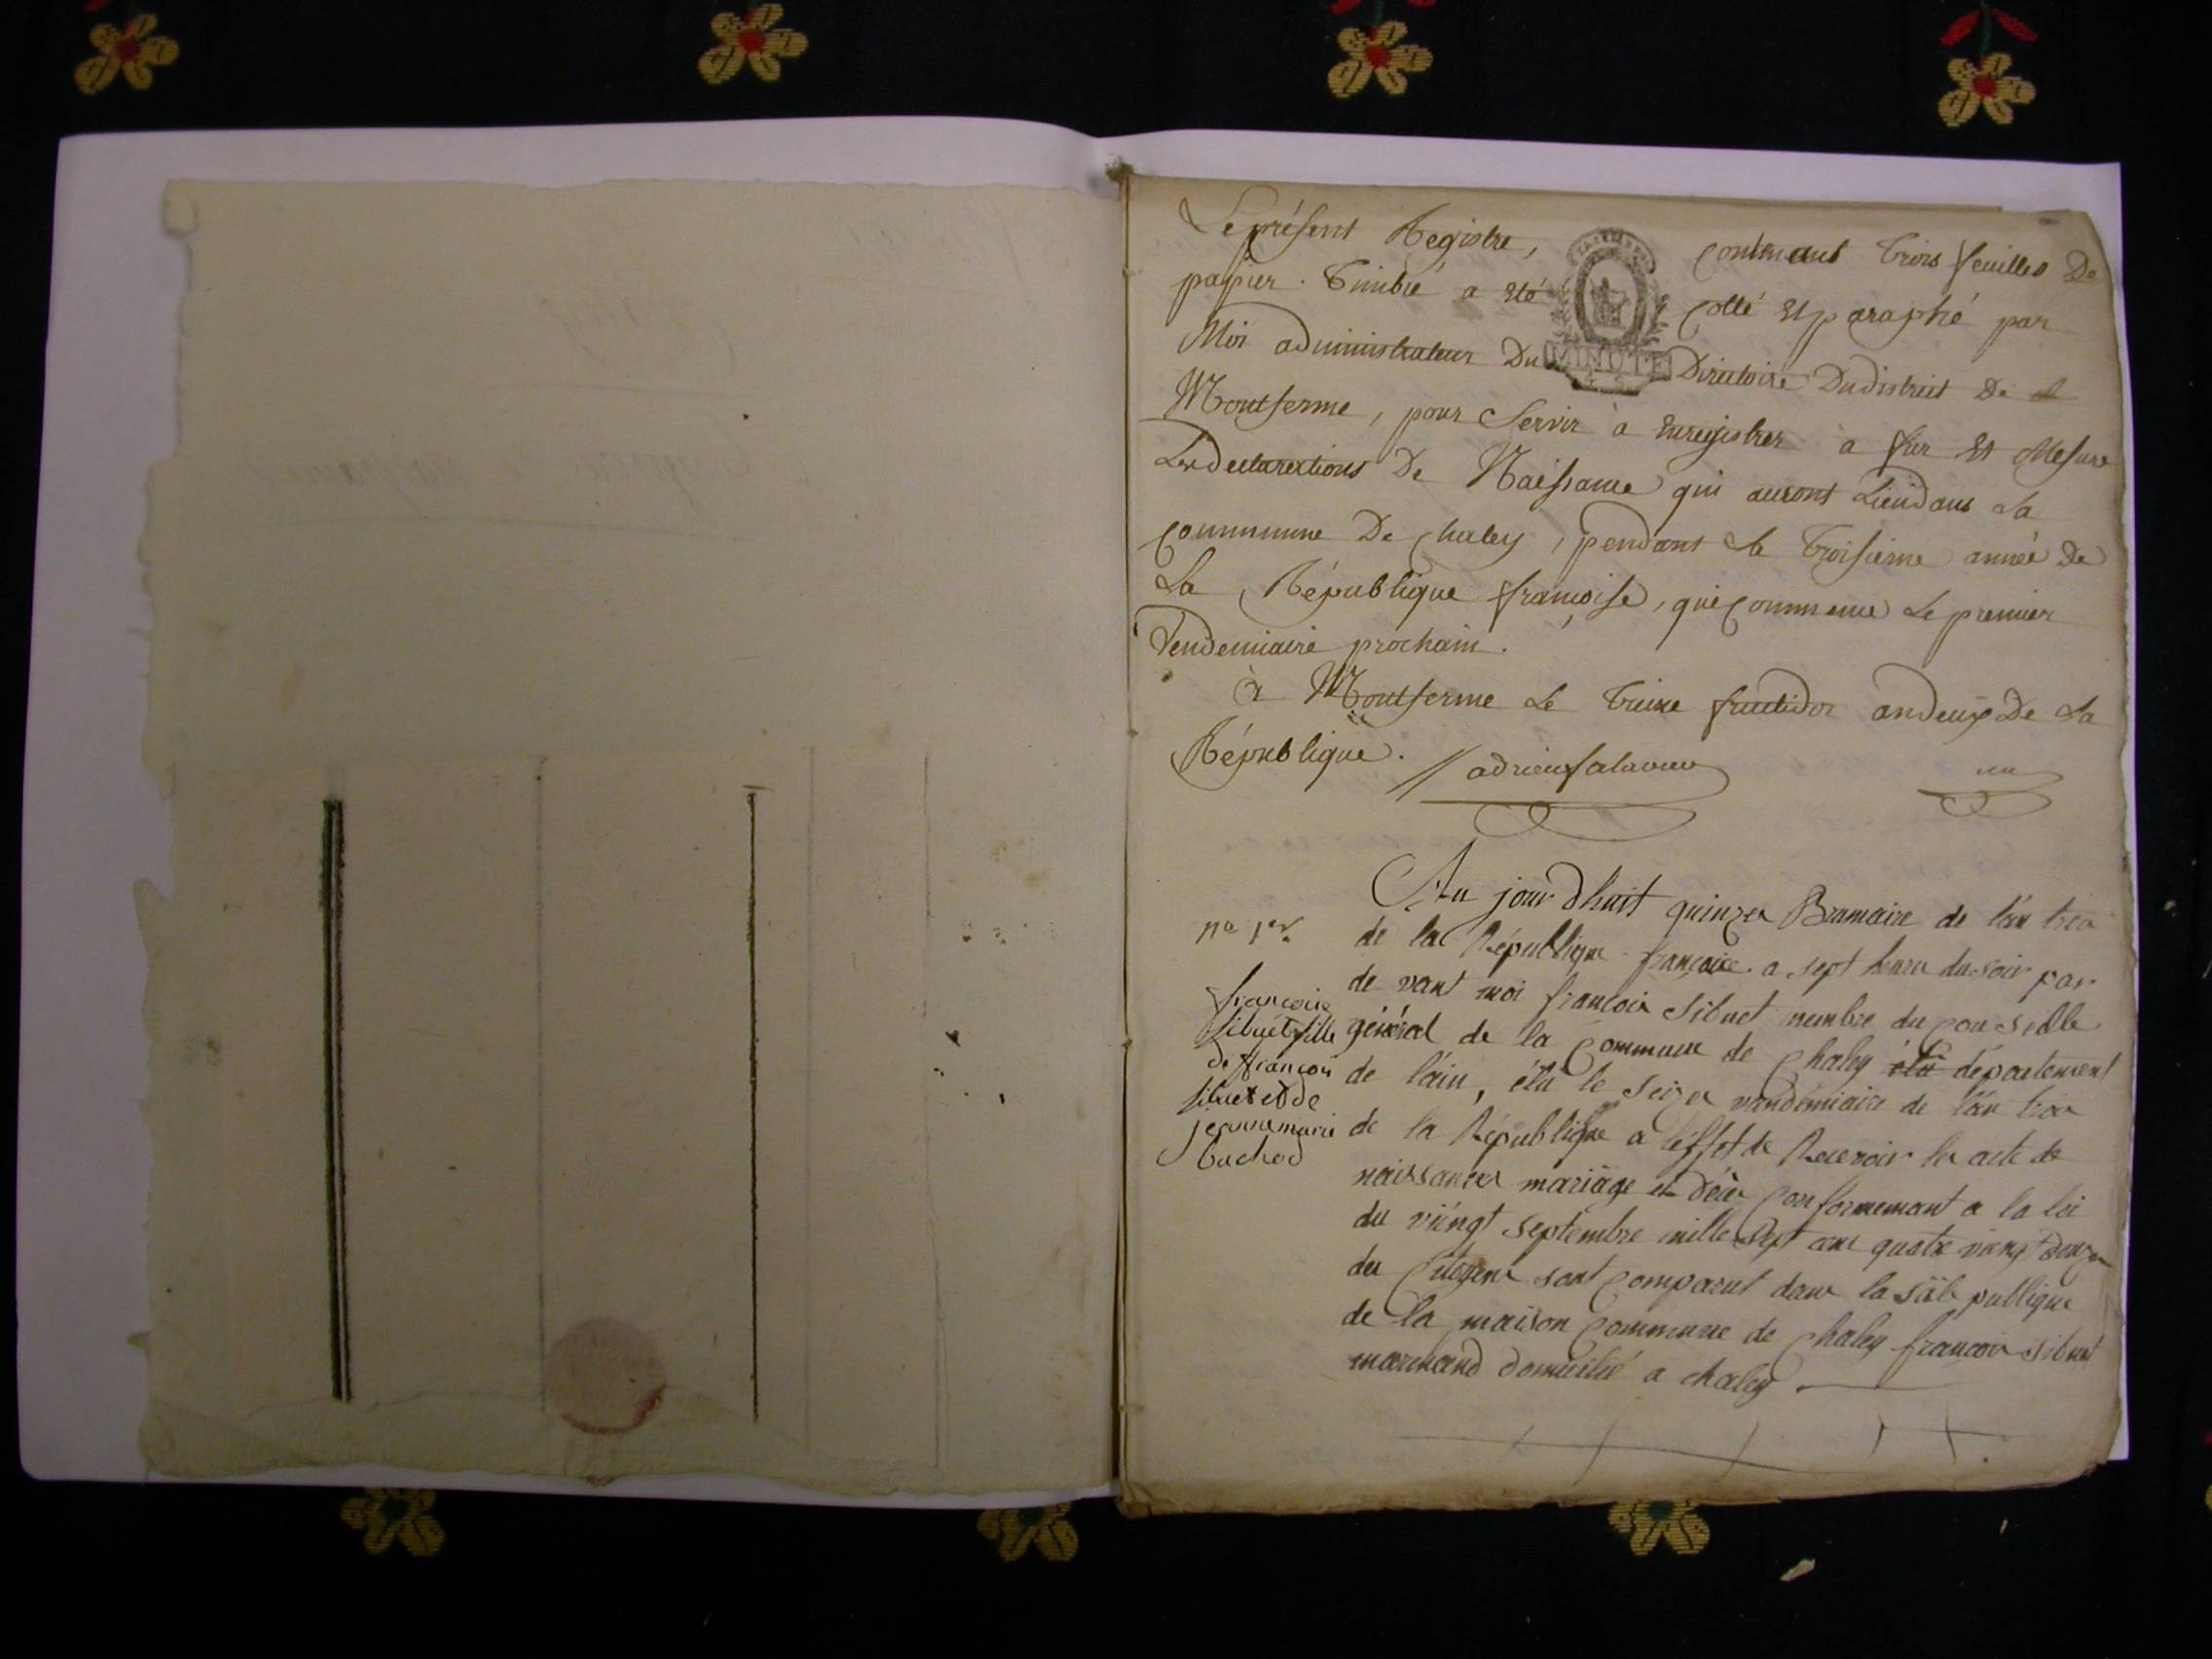 Le présent Registre, contenant trois feuilles De
papier. Timbré a été Cotté Et paraphé par
Moi administrateur Du Directoire Du district De
MINUTE
Montferme, pour Servir à Enregistrer à fur Et Mesure
Les declarations De Naissance qui auront Lieu dans La
Commune De Chaley, pendant la troisieme année De
La République françoise, qui Commence Le premier
Vendemiaire prochain.
à Montferme Le treize fructidor an deux De La
République.
Au jour dhuit quinze Brumaire de l'an trois
de la République française a sept heure du soir par
de vant moi francois Sibuet membre du conseille
général de la Commune de Chaley élu département
de l'ain, élu le seize vandémiaire de l'an trois
de la République a l'éffet de Recevoir les acte de
naissances mariage et décès conformemant a la loi
du viengt septembre mille sept cens quatre vingt douze
des Citoyens sont comparut dans la sale publique
de la maison Commune de Chaley francois sibuet
marchand domicilié a chaley.
no 1er.
francoise
sibuet fille
de françois
sibuet et de
jeanne marie
bachod